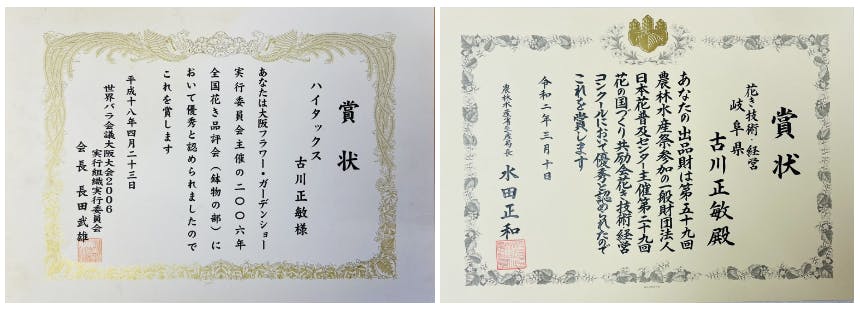 賞状
ハイタックス
古川正敏様
あなたは大阪フラワー・ガーデンショー
実行委員会主催の二〇〇六年
全国花き品評会（鉢物の部）に
おいて優秀と認められましたので
これを賞します
平成十八年四月二十三日
世界バラ会議大阪大会2006
実行組織実行委員会
会長 長田武雄
賞状
花き技術・経営
岐阜県
古川正敏殿
あなたの出品財は第五十九回
農林水産祭参加の一般財団法人
日本花普及センター主催第二十九回
花の国づくり共励会花き技術・経営
コンクールにおいて優秀と認められたので
これを賞します
令和二年三月十日
農林水産省生産局長
水田正和